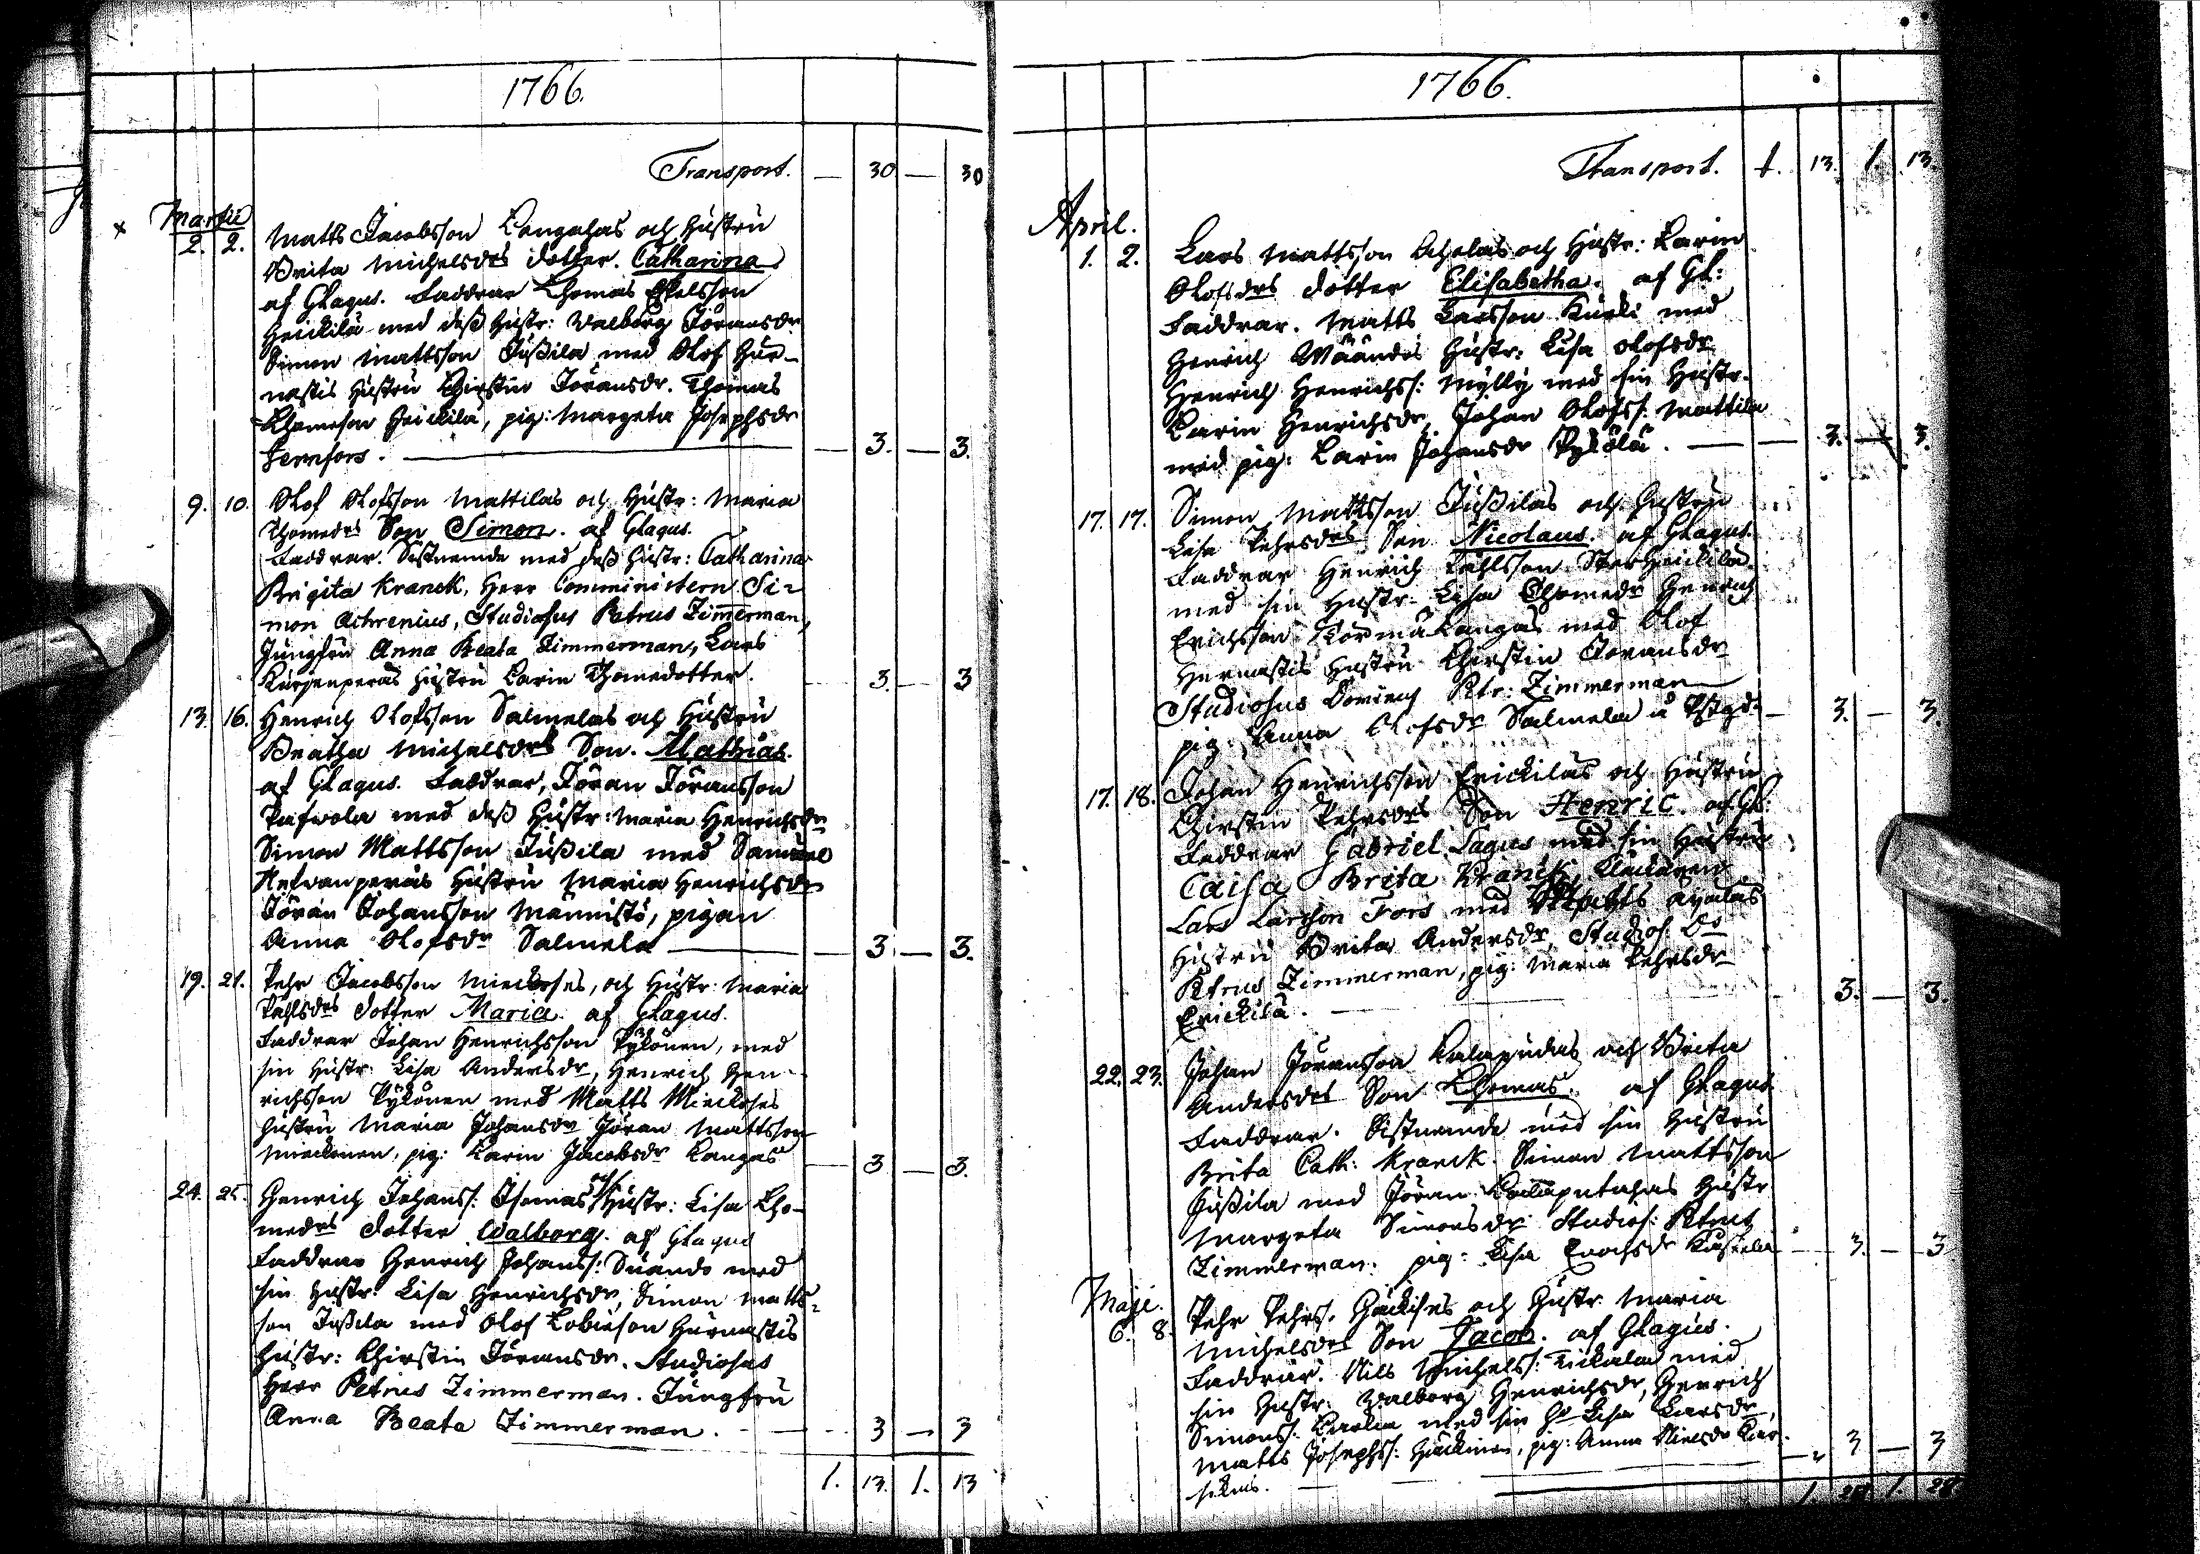 1766.
Transport. — 30 — 30
Martii
2. 2. Matts Jacobsson Kangahas och Hustru
Brita Michelsdrs dotter. Catharina
af Glagus. Faddrar Thomas
Heickilä med dess Hustr: Walborg Jöransdr
Simon Mattsson Jussila med Olof Hur-
nastis Hustru Chirstin Jöransdr. Thomas
Thomeson Heickilä, pig: Margeta Josephsdr
— 3. — 3.
9. 10. Olof Olofsson Mattilas och Hustr: Maria
Thomedrs Son Simon. af Glagus.
Faddrar. Sistnemde med dess Hustr: Catharina
Brigita Kranck, Herr Comministern Si-
mon Achrenius, Studiosus Petrus Zimmerman,
Jungfru Anna Beata Zimmerman, Lars
Kurgenperäs Hustru Karin Thomedotter. 3. — 3
13. 16. Henrich Olofsson Salmelas och Hustru
Beatha Michelsdrs Son. Mathias.
af Glagus. Faddrar, Jöran Jöransson
Pafwola med dess Hustr: Maria Henrichsdr
Simon Mattsson Jussila med Samuel
Hustru Maria Henrichsdr
Jöran Johansson Männistö, pigan
Anna Olofsdr Salmela — 3 — 3.
19. 21. Pehr Jacobsson Mieckoses, och Hustr: Maria
Påhlsdrs dotter Maria. af Glagus.
Faddrar Johan Henrichsson Pylkönen, med
sin Hustr: Lisa Andersdr, Henrich Hen-
richsson Pylkönen med Matts Mieckoses
Hustru Maria Johansdr Jöran Mattsson
Mieckonen, pig: Karin Jacobsdr Kangas — 3 — 3.
24. 25. Henrich Johanss: och Hustr: Lisa Tho-
medrs dotter Walborg. af Glagus
Faddrar Henrich Johanss: Suando med
sin Hustr: Lisa Henrichsdr, Simon Matts-
son Jussila med Olof Tobieson Hurnastis
Hustr: Chirstin Jöransdr. Studiosus
Herr Petrus Zimmerman. Jungfru
Anna Beata Zimmerman. — 3 — 3
1. 13. 1. 13
1766.
Transport. 1. 13. 1. 13.
April.
1. 2. Lars Mattsson och Hustr: Karin
Olofsdrs dotter Elisabetha. af Gl:
Faddrar. Matts Larsson Kurki med
Henrich Hustr: Lisa Olofsdr
Henrich Henrichss: Mylly med sin Hustr.
Karin Henrichsdr, Johan Olofss: Mattila
med pig: Karin Johansdr — 3. — 3.
17. 17. Simon Mattsson Jussilas och Hustru
Lisa Pehrsdrs Son Nicolaus. af Glagus.
Faddrar Henrich Påhlsson
med sin Hustr: Lisa Thomedr Henrich
Erichsson Kormukangas med Olof
Hurnastis Hustru Chirstin Jöransdr
Studiosus Petr: Zimmerman
pig: Anna Olofsdr Salmela — 3. — 3.
17. 18. Johan Henrichsson Erickiläs och Hustru
Chirstin Pehrsdrs Son Henric. af Gl:
Faddrar Gabriel Lagus med sin Hustru
Caisa Brita Kranck, Klockaren
Lars Larsson Fors med
Hustru Brita Andersdr, Studios:
Petrus Zimmerman, pig: Maria Pehrsdr
Erickilä. — 3. — 3.
22. 23. Johan Jöransson Kalapudas och Brita
Andersdrs Son Thomas. af Glagus
Faddrar. Sistnemde med sin Hustru
Brita Cath: Kranck. Simon Mattsson
Jussila med Jöran Kalaputahas Hustr
Margeta Simonsdr Studios: Petrus
Zimmerman. pig: Lisa — 3. — 3
Maji.
6. 8. Pehr Pehrs. Häckises och Hustr Maria
Michelsdrs Son Jacob. af Glagus.
Faddrar. Nils Michelss: med
sin Hustr: Walborg Henrichsdr, Henrich
Simonss: med sin Lisa Larsdr,
Matts Josephss: Häckinen, pig: Anna — 3 — 3
1. 28 1. 28